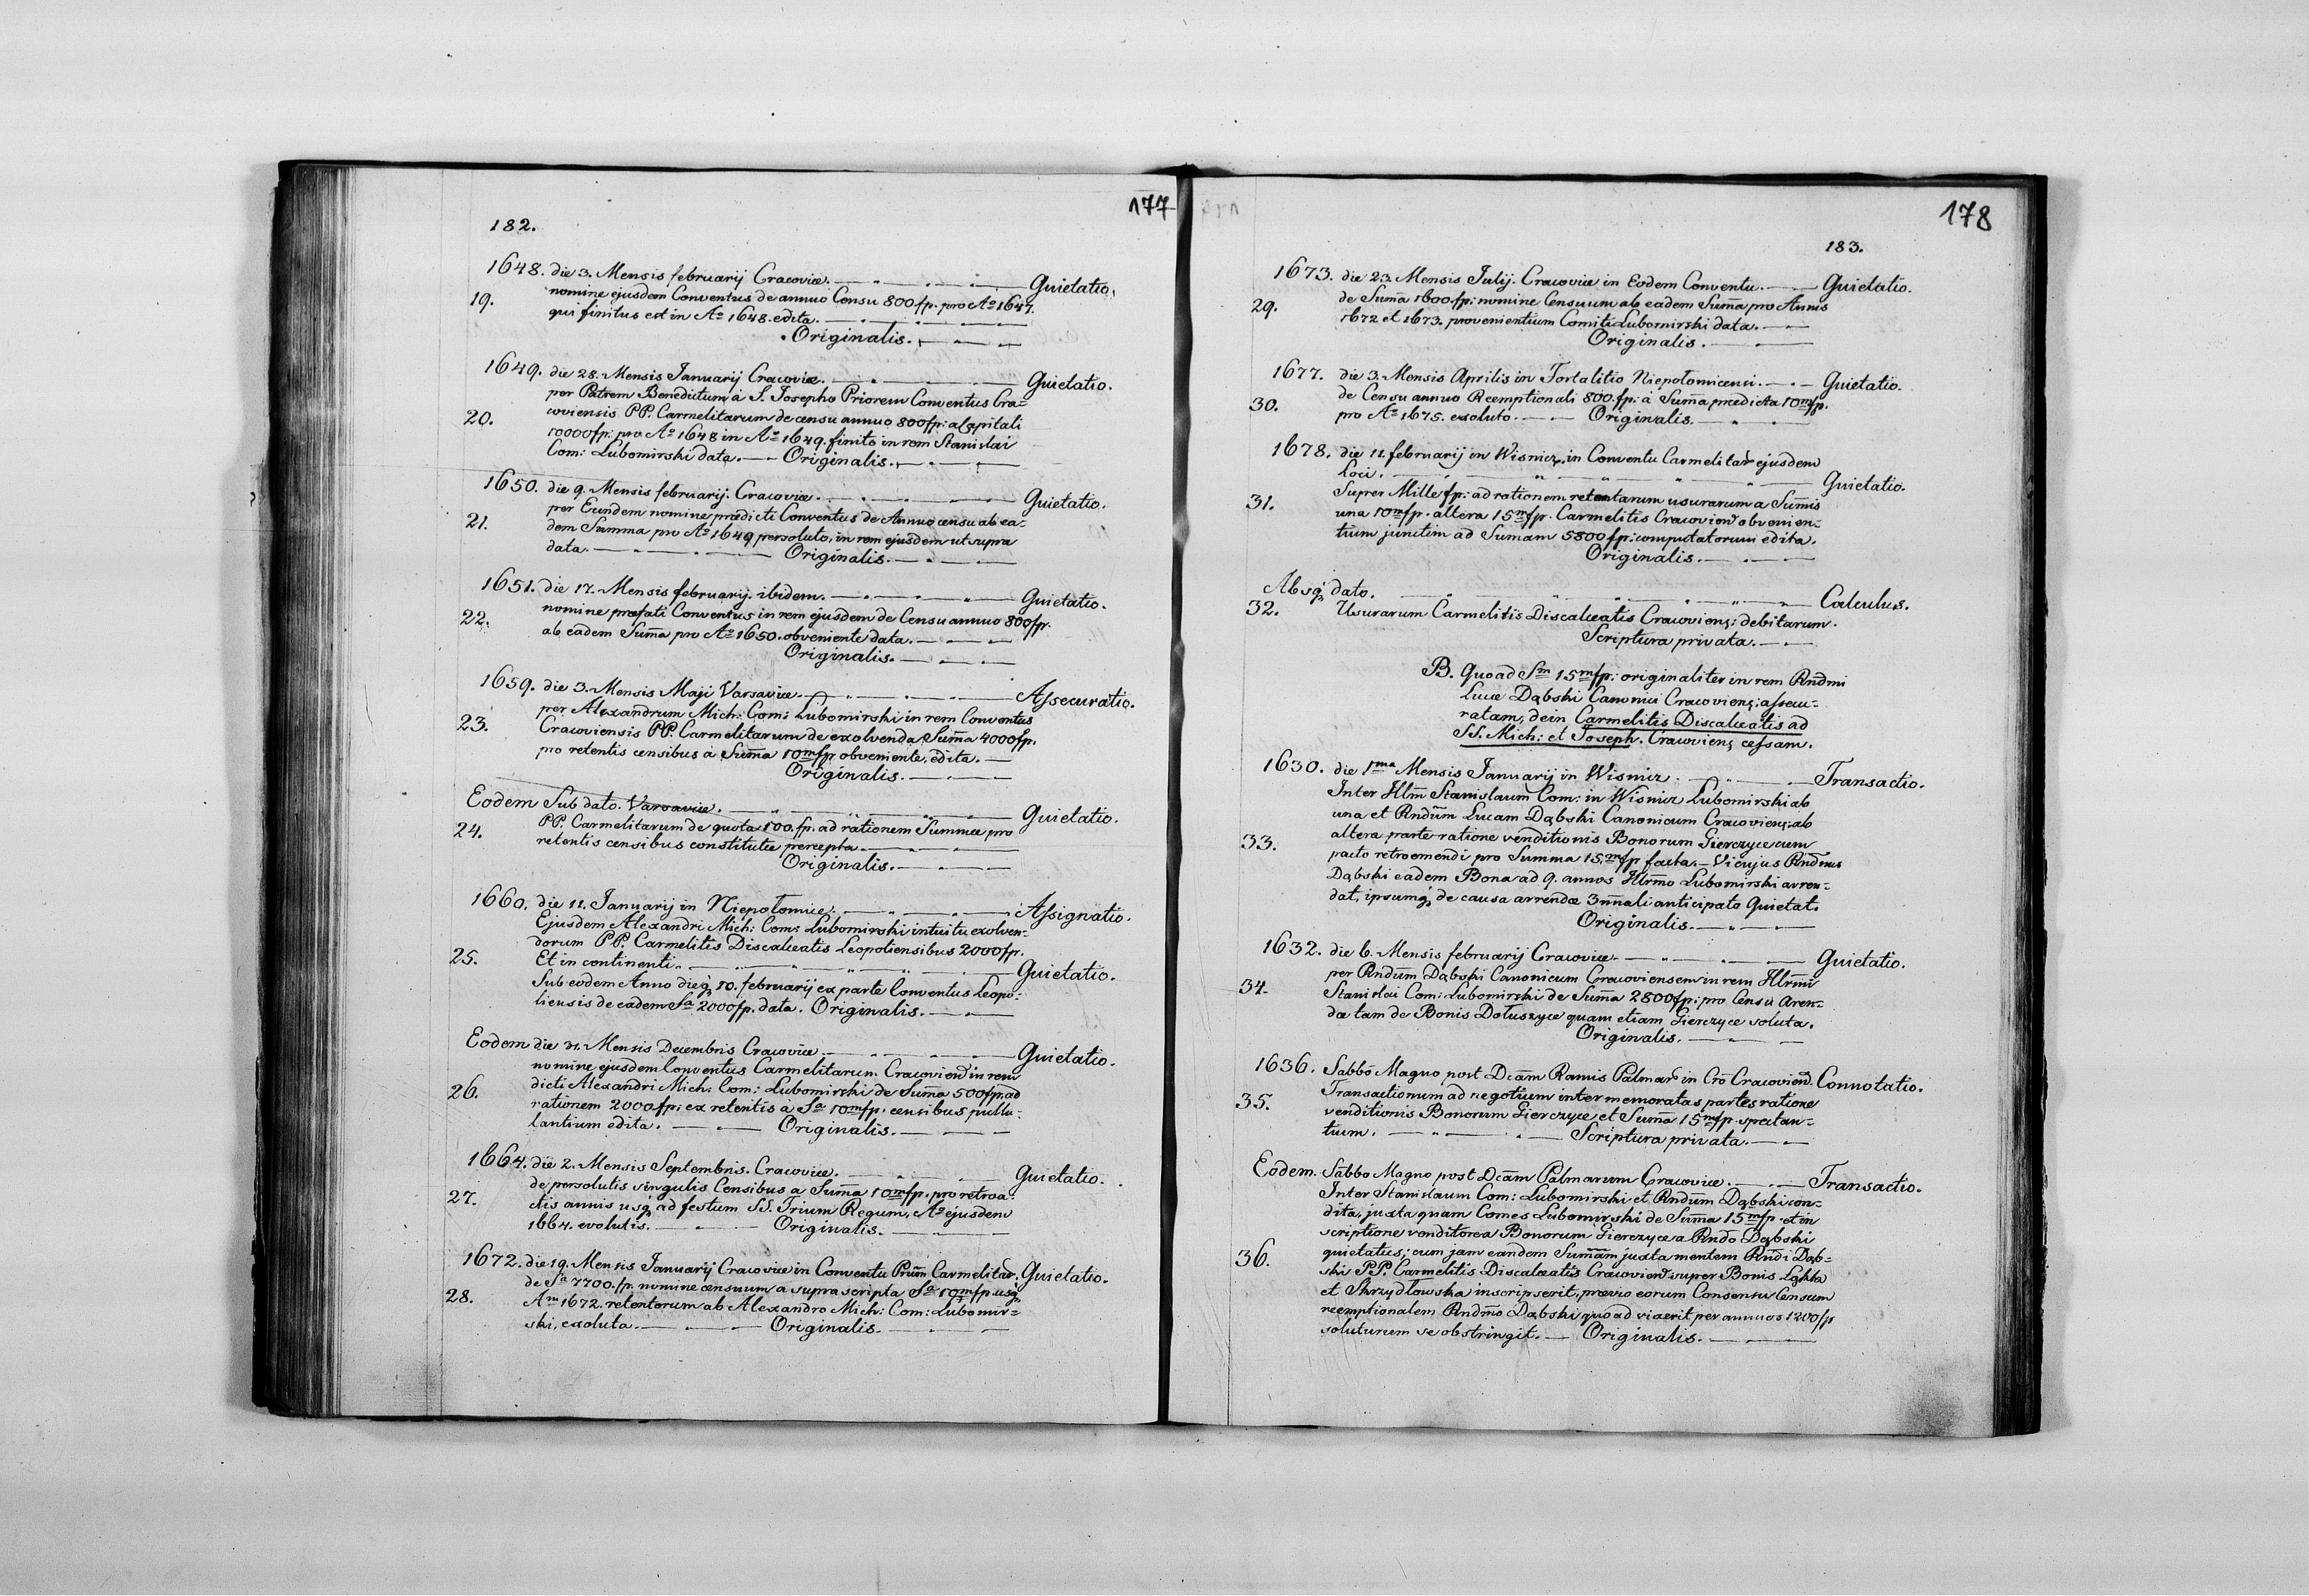 177
182.
1648. die 3. Mensis februarij Cracoviæ. Quietatio.
nomine ejusdem Conventus de annuo Censu 800 fp. pro Aº 1647.
19. qui finitus est in Aº 1648. edita.
Originalis.
1649. die 28. Mensis Januarij Cracoviæ. Quietatio.
per Patrem Benedictum à S. Josepho Priorem Conventus Cra=
20. coviensis PP. Carmelitarum de censu annuo 800 fp: a Capitali
10000 fp: pro Aº 1648 in Aº 1649. finito in rem Stanislai
Com: Lubomirski data. Originalis.
1650. die 9. Mensis februarij. Cracoviæ. Quietatio.
per Eundem nomine prædicti Conventus de Annuo censu ab ea=
21. dem Summa pro Aº 1649 persoluto, in rem ejusdem ut supra
data. Originalis.
1651. die 17. Mensis februarij. ibidem. Quietatio.
nomine præfati Conventus in rem ejusdem de Censu annuo 800 fp.
22. ab eadem Sum̄a pro Aº 1650. obveniente data.
Originalis.
1659. die 3. Mensis Maji Varsaviæ. Assecuratio.
per Alexandrum Mich: Com: Lubomirski in rem Conventus
23. Cracoviensis PP. Carmelitarum de exolvenda Sum̄a 4000 fp.
pro retentis censibus à Sum̄a 10m fp obveniente, edita.
Originalis.
Eodem Sub dato. Varsaviæ. Quietatio.
PP. Carmelitarum de quota 100. fp. ad rationem Summæ pro
24. retentis censibus constitutæ percepta.
Originalis.
1660. die 11. Januarij in Niepołomice. Assignatio.
Ejusdem Alexandri Mich: Com: Lubomirski intuitu exolven=
dorum PP. Carmelitis Discalceatis Leopoliensibus 2000 fp.
25. Et in continenti. Quietatio.
Sub eodem Anno dieq, 10. februarij ex parte Conventus Leopo=
liensis de eadem Sa 2000 fp. data. Originalis.
Eodem die 31. Mensis Decembris Cracoviæ. Quietatio.
nomine ejusdem Conventus Carmelitarum Cracovien̄ in rem
26. dicti Alexandri Mich: Com: Lubomirski de Sum̄a 500 fp. ad
rationem 2000 fp: ex retentis à Sa 10m fp. censibus pullu=
lantium edita. Originalis.
1664. die 2. Mensis Septembris. Cracoviæ. Quietatio.
de persolutis singulis Censibus a Sum̄a 10m fp. pro retroa=
27. ctis annis usq, ad festum SS. Trium Regum, Aº ejusdem
1664. evolutis. Originalis.
1672. die 19. Mensis Januarij Cracoviæ in Conventu Prūm Carmelitar. Quietatio.
de Sa 7700. fp. nomine censuum a supra scripta Sa 10m fp. usq,
28. Am 1672. retentorum ab Alexandro Mich: Com: Lubomir=
ski, exoluta. Originalis.
178
183.
1673. die 23. Mensis Julij. Cracoviæ in Eodem Conventu. Quietatio.
29. de Sum̄a 1600 fp: nomine Censuum ab eadem Sum̄a pro Annis
1672 et 1673. provenientium Comiti Lubomirski data.
Originalis.
1677. die 3. Mensis Aprilis in Fortalitio Niepołomicensi. Quietatio.
30. de Censu annuo Reemptionali 800. fp: à Sum̄a prædicta 10m fp.
pro Aº 1675. exoluto. Originalis.
1678. die 11. februarij in Wisnicz, in Conventu Carmelitar ejusdem
Loci. Quietatio.
31. Super Mille fp: ad rationem retentarum usurarum a Sum̄is
una 10m fp. altera 15m fp. Carmelitis Cracovien̄ obvenien=
tium junctim ad Sumam 5800 fp: computatorum edita.
Originalis.
Absq, dato. Calculus.
32. Usurarum Carmelitis Discalceatis Cracoviens: debitarum.
Scriptura privata.
B. Quoad Sm 15m fp: originaliter in rem Rndmi
Lucæ Dąbski Canonici Cracoviens: assecu=
ratam, dein Carmelitis Discalceatis ad
SS. Mich: et Joseph. Cracoviens cessam.
1630. die 1ma Mensis Januarij in Wisnicz. Transactio.
Inter Illm̄ Stanislaum Com: in Wisnicz Lubomirski ab
una et Rndūm Lucam Dąbski Canonicum Cracoviens: ab
33. altera parte ratione venditionis Bonorum Gierczyce cum
pacto retroemendi pro Summa 15.m fp facta. Vi cujus Rndmus
Dąbski eadem Bona ad 9. annos Illm̄o Lubomirski arren=
dat, ipsumq, de causa arrendæ 3nnali anticipato Quietat.
Originalis.
1632. die 6. Mensis februarij Cracoviæ. Quietatio.
per Rndūm Dąbski Canonicum Cracoviensem in rem Illmi
34. Stanislai Com: Lubomirski de Sum̄a 2800 fp: pro Censu Aren=
dæ tam de Bonis Dołuszyce quam etiam Gierczyce soluta.
Originalis.
1636. Sabbō Magno post Dcām Ramis Palmar in Crō Cracovien̄. Connotatio.
35. Transactionum ad negotium inter memoratas partes ratione
venditionis Bonorum Gierczyce et Sum̄a 15m fp. spectan=
tium. Scriptura privata.
Eodem. Sabbo Magno post Dcām Palmarum Cracoviæ. Transactio.
Inter Stanislaum Com: Lubomirski et Rndūm Dąbski con=
dita, juxta quam Comes Lubomirski de Sum̄a 15m fp. et in
scriptione venditorea Bonorum Gierczyce a Rndo Dąbski
36. quietatus; cum jam eandem Sum̄am juxta mentem Rndi Dąb=
ski PP. Carmelitis Discalceatis Cracovien̄ super Bonis Łąkta
et Skrzydłowska inscripserit, prævio eorum Consensu Censum
reemptionalem Rndm̄o Dąbski quoad vixerit per annuos 1200 fp
soluturum se obstringit. Originalis.